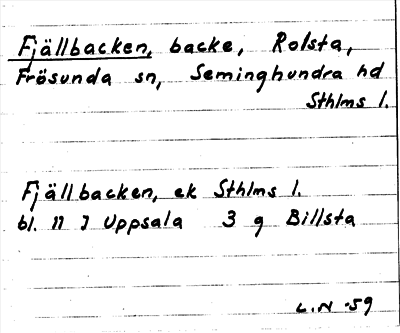 Fjällbacken, backe, Rolsta,
Frösunda sn, Seminghundra hd
Sthlms l.
Fjällbacken, ek Sthlms l.
bl. 11 I Uppsala 3 g Billsta
L.N -59